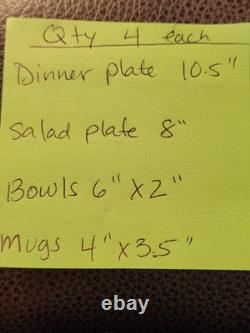 Qty 4 each
Dinner plate 10.5"
Salad plate 8"
Bowls 6" X 2"
Mugs 4" x 3.5"
222sound.com